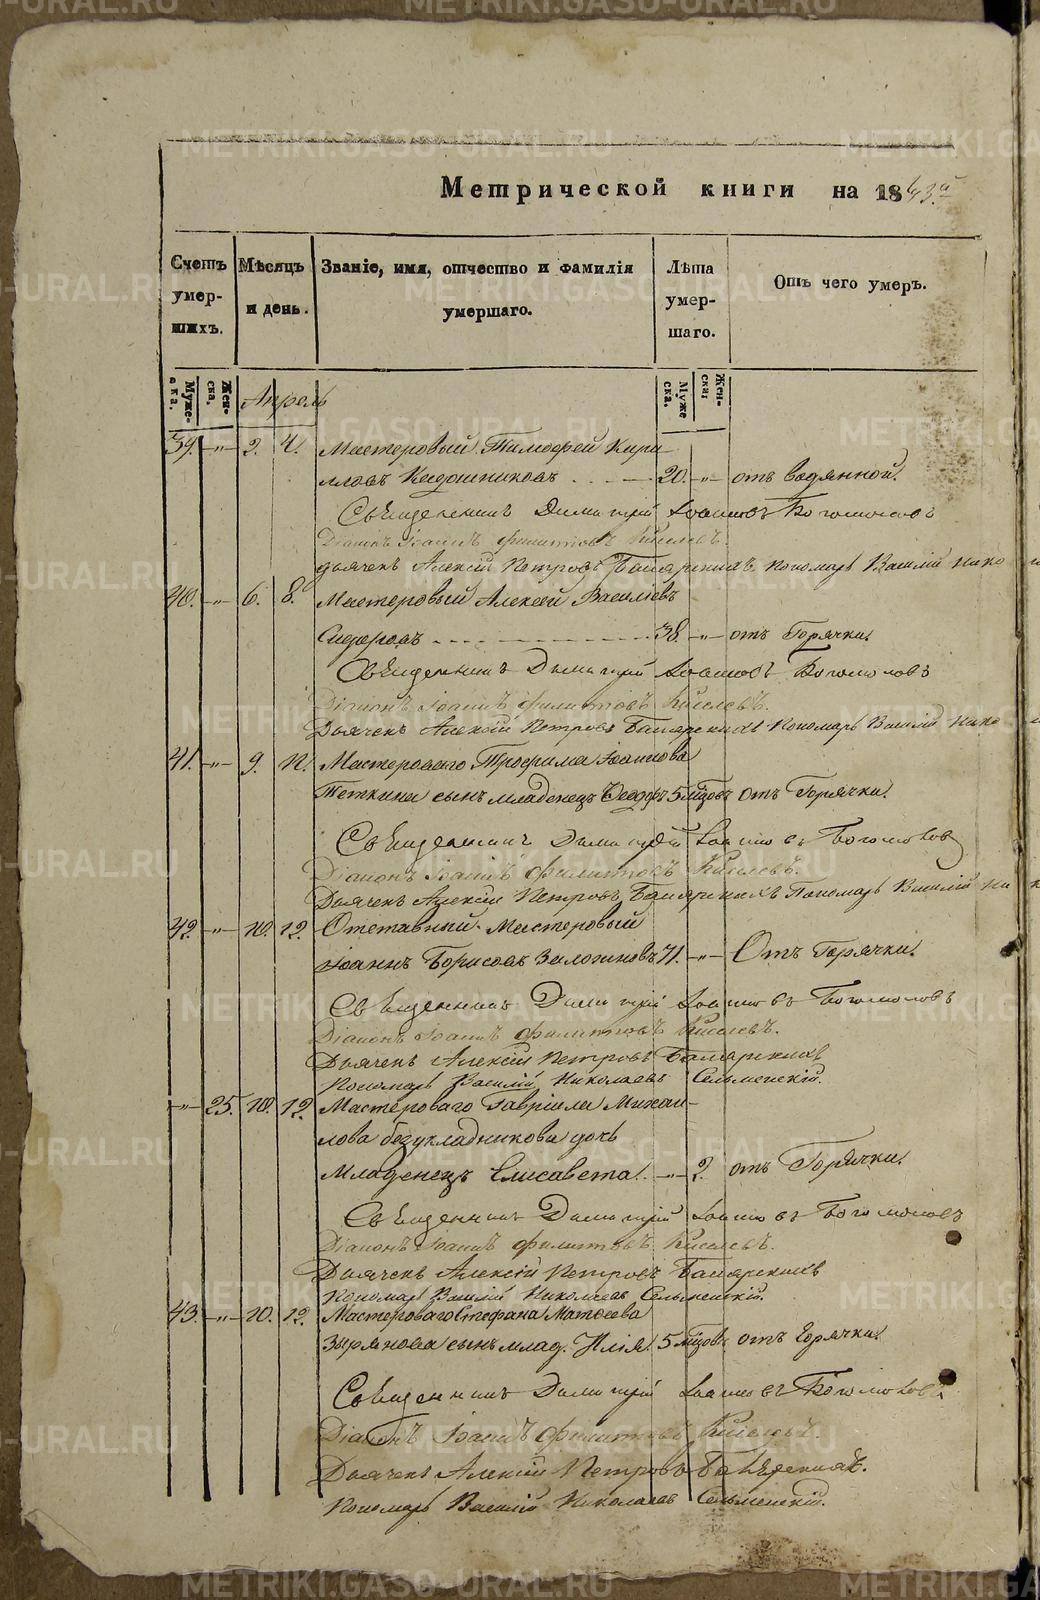 METRIKI.GASO-URAL.RU
Метрической книги на 1843.й
Счетъ умер-шихъ. Мѣсяцъ и день. Званіе, имя, отчество и фамилія умершаго. Лѣта умер-шаго. Отъ чего умеръ.
Муже-ска. Жен-ска. Апрель Муже ска. Жен-ска:
39. -"- 2. 4. Мастеровый Тимофей Кири-
ловъ 20. -"- отъ водянной.
Священникъ Димитрій Іоанновъ Богомоловъ
Діаконъ Іоаннъ Филиповъ Киселевъ.
дьячекъ Алексій Петровъ пономарь Василій Нико
40. -"- 6. 8. Мастеровый Алексей Васильевъ
Сидоровъ 38. -"- отъ Горячки.
Священникъ Димитрій Іоанновъ Богомоловъ
Діаконъ Іоаннъ Филиповъ Киселевъ.
Дьячекъ Алексій Петровъ Пономарь Василій Нико
41. -"- 9. 11. Мастероваго Трофима Іоаннова
Теткина сынъ младенецъ Ѳеодоръ 5 мѣцовъ отъ Горячки.
Священникъ Димитрій Іоанновъ Богомоловъ
Діаконъ Іоаннъ Филиповъ Киселевъ.
Дьячекъ Алексій Петровъ Пономарь Василій Ни
42. -"- 10. 12. Отставный Мастеровый
Іоаннъ Борисовъ 71. -"- Отъ Горячки.
Священникъ Димитрій Іоанновъ Богомоловъ
Діаконъ Іоаннъ Филиповъ Киселевъ.
Дьячекъ Алексій Петровъ
Пономарь Василій Николаевъ Сельменскій.
-"- 25. 10. 12. Мастероваго Гавріила Михаи-
лова безукладникова дочь
Младенецъ Елисавета. -"- 2. отъ Горячки.
Священникъ Димитрій Іоанновъ Богомоловъ
Діаконъ Іоаннъ Филиповъ Киселевъ.
Дьячекъ Алексій Петровъ
Пономарь Василій Николаевъ Сельменскій.
43. -"- 10. 12. Мастероваго Стефана Матѳеева
Зырянова сынъ млад. Илія. 5 мѣцовъ отъ Горячки.
Священникъ Димитрій Іоанновъ Богомоловъ.
Діаконъ Іоаннъ Филиповъ Киселевъ.
Дьячекъ Алексій Петровъ
Пономарь Василій Николаевъ Сельменскій.